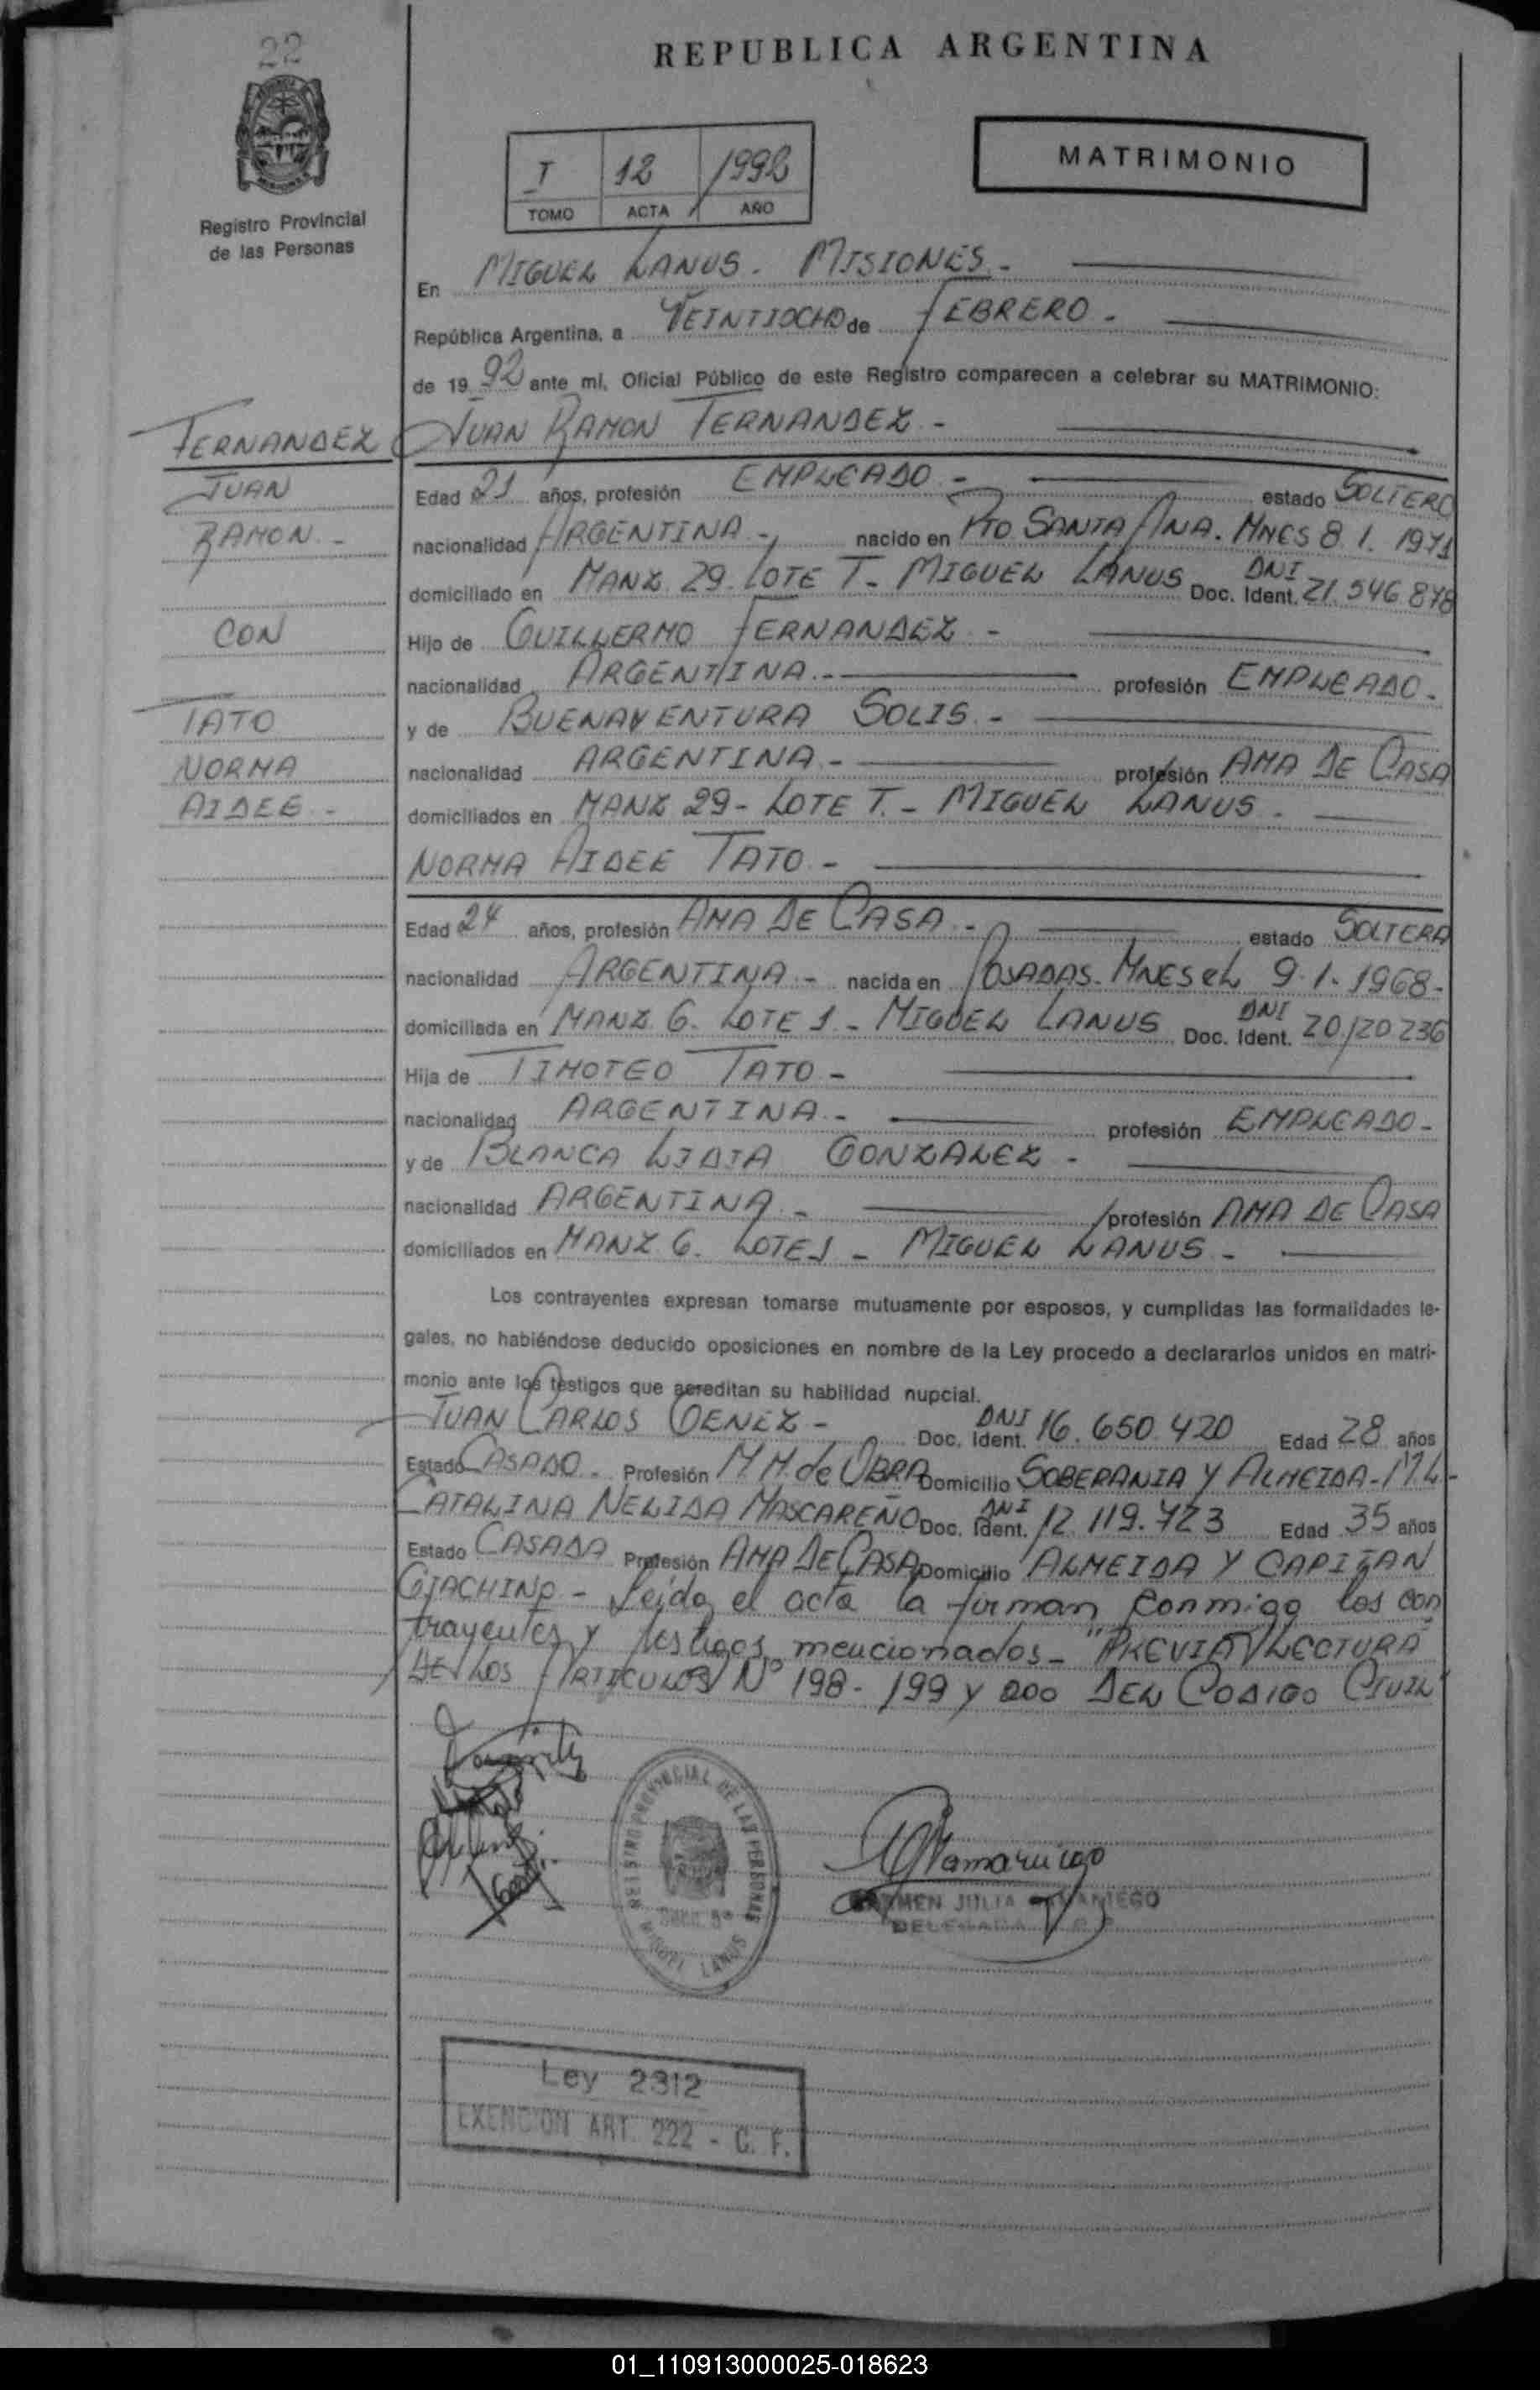 22
REPUBLICA ARGENTINA
MATRIMONIO
I 12 1992
TOMO ACTA AÑO
Registro Provincial
de las Personas
En MIGUEL LANUS. MISIONES.-
República Argentina, a VEINTIOCHO de FEBRERO.-
de 1992 ante mí, Oficial Público de este Registro comparecen a celebrar su MATRIMONIO:
FERNANDEZ
JUAN
RAMON.-
CON
TATO
NORMA
AIDEE.-
JUAN RAMON FERNANDEZ.-
Edad 21 años, profesión EMPLEADO.- estado SOLTERO
nacionalidad ARGENTINA.- nacido en PTO SANTA ANA. MNES 8.1.1971
domiciliado en MANZ. 29. LOTE T- MIGUEL LANUS Doc. Ident. DNI 21.546.878
Hijo de GUILLERMO FERNANDEZ.-
nacionalidad ARGENTINA.- profesión EMPLEADO.-
y de BUENAVENTURA SOLIS.-
nacionalidad ARGENTINA.- profesión AMA DE CASA
domiciliados en MANZ 29- LOTE T.- MIGUEL LANUS.
NORMA AIDEE TATO.-
Edad 24 años, profesión AMA DE CASA.- estado SOLTERA
nacionalidad ARGENTINA.- nacida en POSADAS. MNES el 9.1.1968.
domiciliada en MANZ 6. LOTE 1- MIGUEL LANUS Doc. Ident. DNI 20.120.236
Hija de TIMOTEO TATO.-
nacionalidad ARGENTINA.- profesión EMPLEADO-
y de BLANCA LIDIA GONZALEZ.-
nacionalidad ARGENTINA.- profesión AMA DE CASA
domiciliados en MANZ 6. LOTE 1- MIGUEL LANUS-
Los contrayentes expresan tomarse mutuamente por esposos, y cumplidas las formalidades le-
gales, no habiéndose deducido oposiciones en nombre de la Ley procedo a declararlos unidos en matri-
monio ante los testigos que acreditan su habilidad nupcial.
JUAN CARLOS Doc. Ident. DNI 16.650.420 Edad 28 años
Estado CASADO. Profesión M.M. de OBRA Domicilio SOBERANIA Y ALMEIDA-M.L-
CATALINA NELIDA MASCAREÑO Doc. Ident. DNI 12.119.723 Edad 35 años
Estado CASADA Profesión AMA DE CASA Domicilio ALMEIDA Y CAPITAN
GIACHINO- Leída el acta la firman conmigo los con
trayentes y testigos mencionados- "PREVIA LECTURA
DE LOS ARTICULOS Nº 198-199 y 200 DEL CODIGO CIVIL"
REGISTRO PROVINCIAL DE LAS PERSONAS
MIGUEL LANUS
CARMEN JULIA SAMANIEGO
DELEGADA
Ley 2312
EXENCION ART. 222 - C. F.
01_110913000025-018623